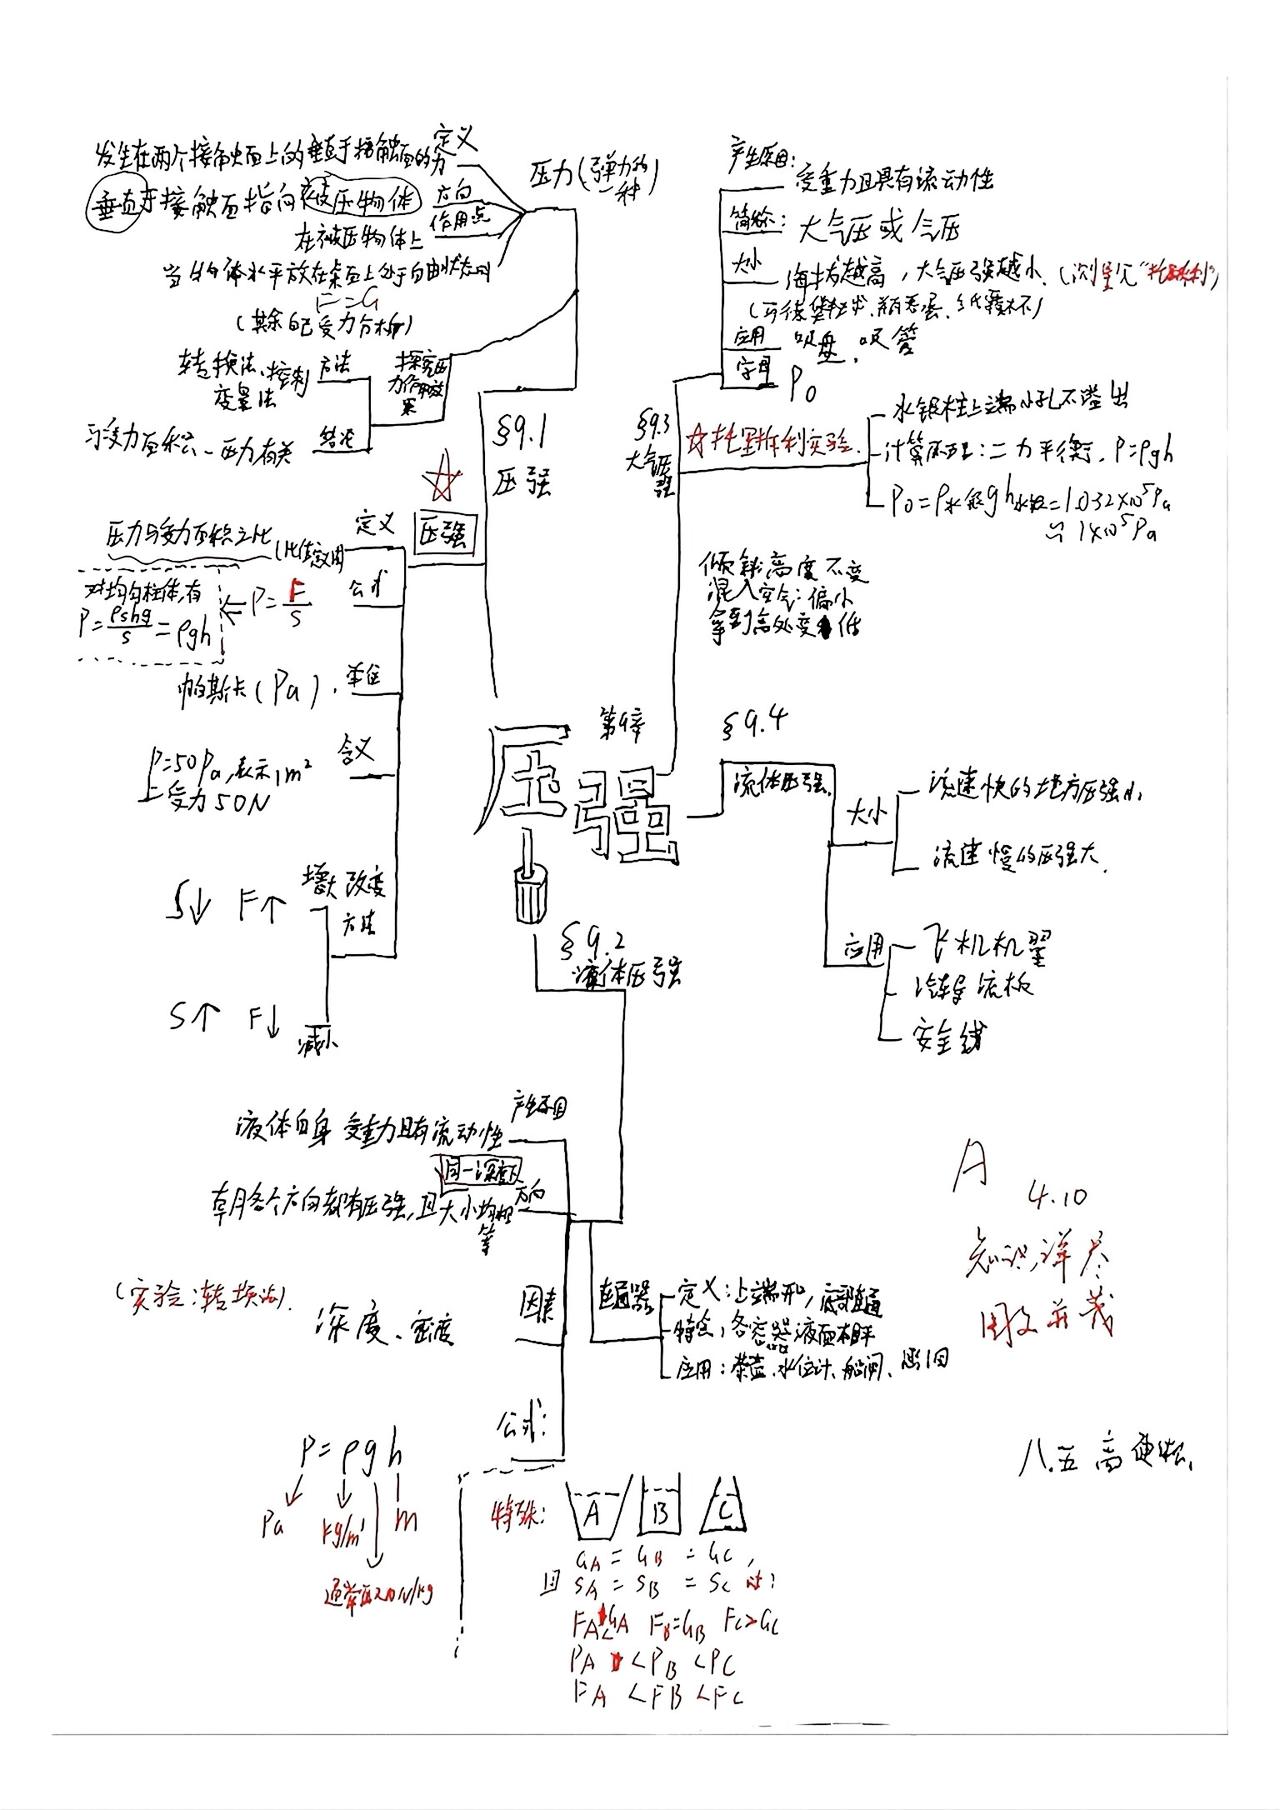 第9章
压强
§9.1
压强
压力(弹力的
一种)
定义
发生在两个接触面上的垂直于接触面的力
方向
垂直于接触面指向被压物体
作用点
在被压物体上
当物体水平放在桌面上处于自由状态时
F=G
(其余自己受力分析)
探究压
力作用效
果
方法
转换法、控制
变量法
结论
与受力面积、压力有关
压强
定义
压力与受力面积之比(比值定义法)
公式
P=F/S
对均匀柱体,有
P=ρshg/s=ρgh
单位
帕斯卡(Pa).
含义
P=50Pa,表示1m²
上受力50N
改变
方法
增大
S↓ F↑
减小
S↑ F↓
§9.3
大气压
强
产生原因:
受重力且具有流动性
简称:
大气压或气压
大小
海拔越高,大气压强越小.(测量见"托里拆利")
(马德堡半球、瓶吞蛋、纸覆水杯)
应用
吸盘、吸管
字母
P₀
☆托里拆利实验.
水银柱上端小孔不溢出
计算原理:二力平衡,P=ρgh
P₀=ρ水银gh水银=1.032×10⁵Pa
≈1×10⁵Pa
倾斜高度不变
混入空气:偏小
拿到高处变低
§9.4
流体压强.
大小
流速快的地方压强小
流速慢的压强大.
应用
飞机机翼
汽车导流板
安全线
§9.2
液体压强
产生原因
液体自身受重力且有流动性
方向
同一深度
朝各个方向都有压强,且大小均相
等
因素
深度、密度
(实验:转换法).
连通器
定义:上端开口,底部连通
特点,各容器液面相平
应用:茶壶、水位计、船闸、
公式:
P=ρgh
Pa
kg/m³
m
通常取10N/kg
特殊:
A B C
GA=GB=GC,
且SA=SB=SC时:
FA<GA FB=GB FC>GC
PA<PB<PC
FA<FB<FC
A
4.10
知识详尽
图文并茂
八.五 高